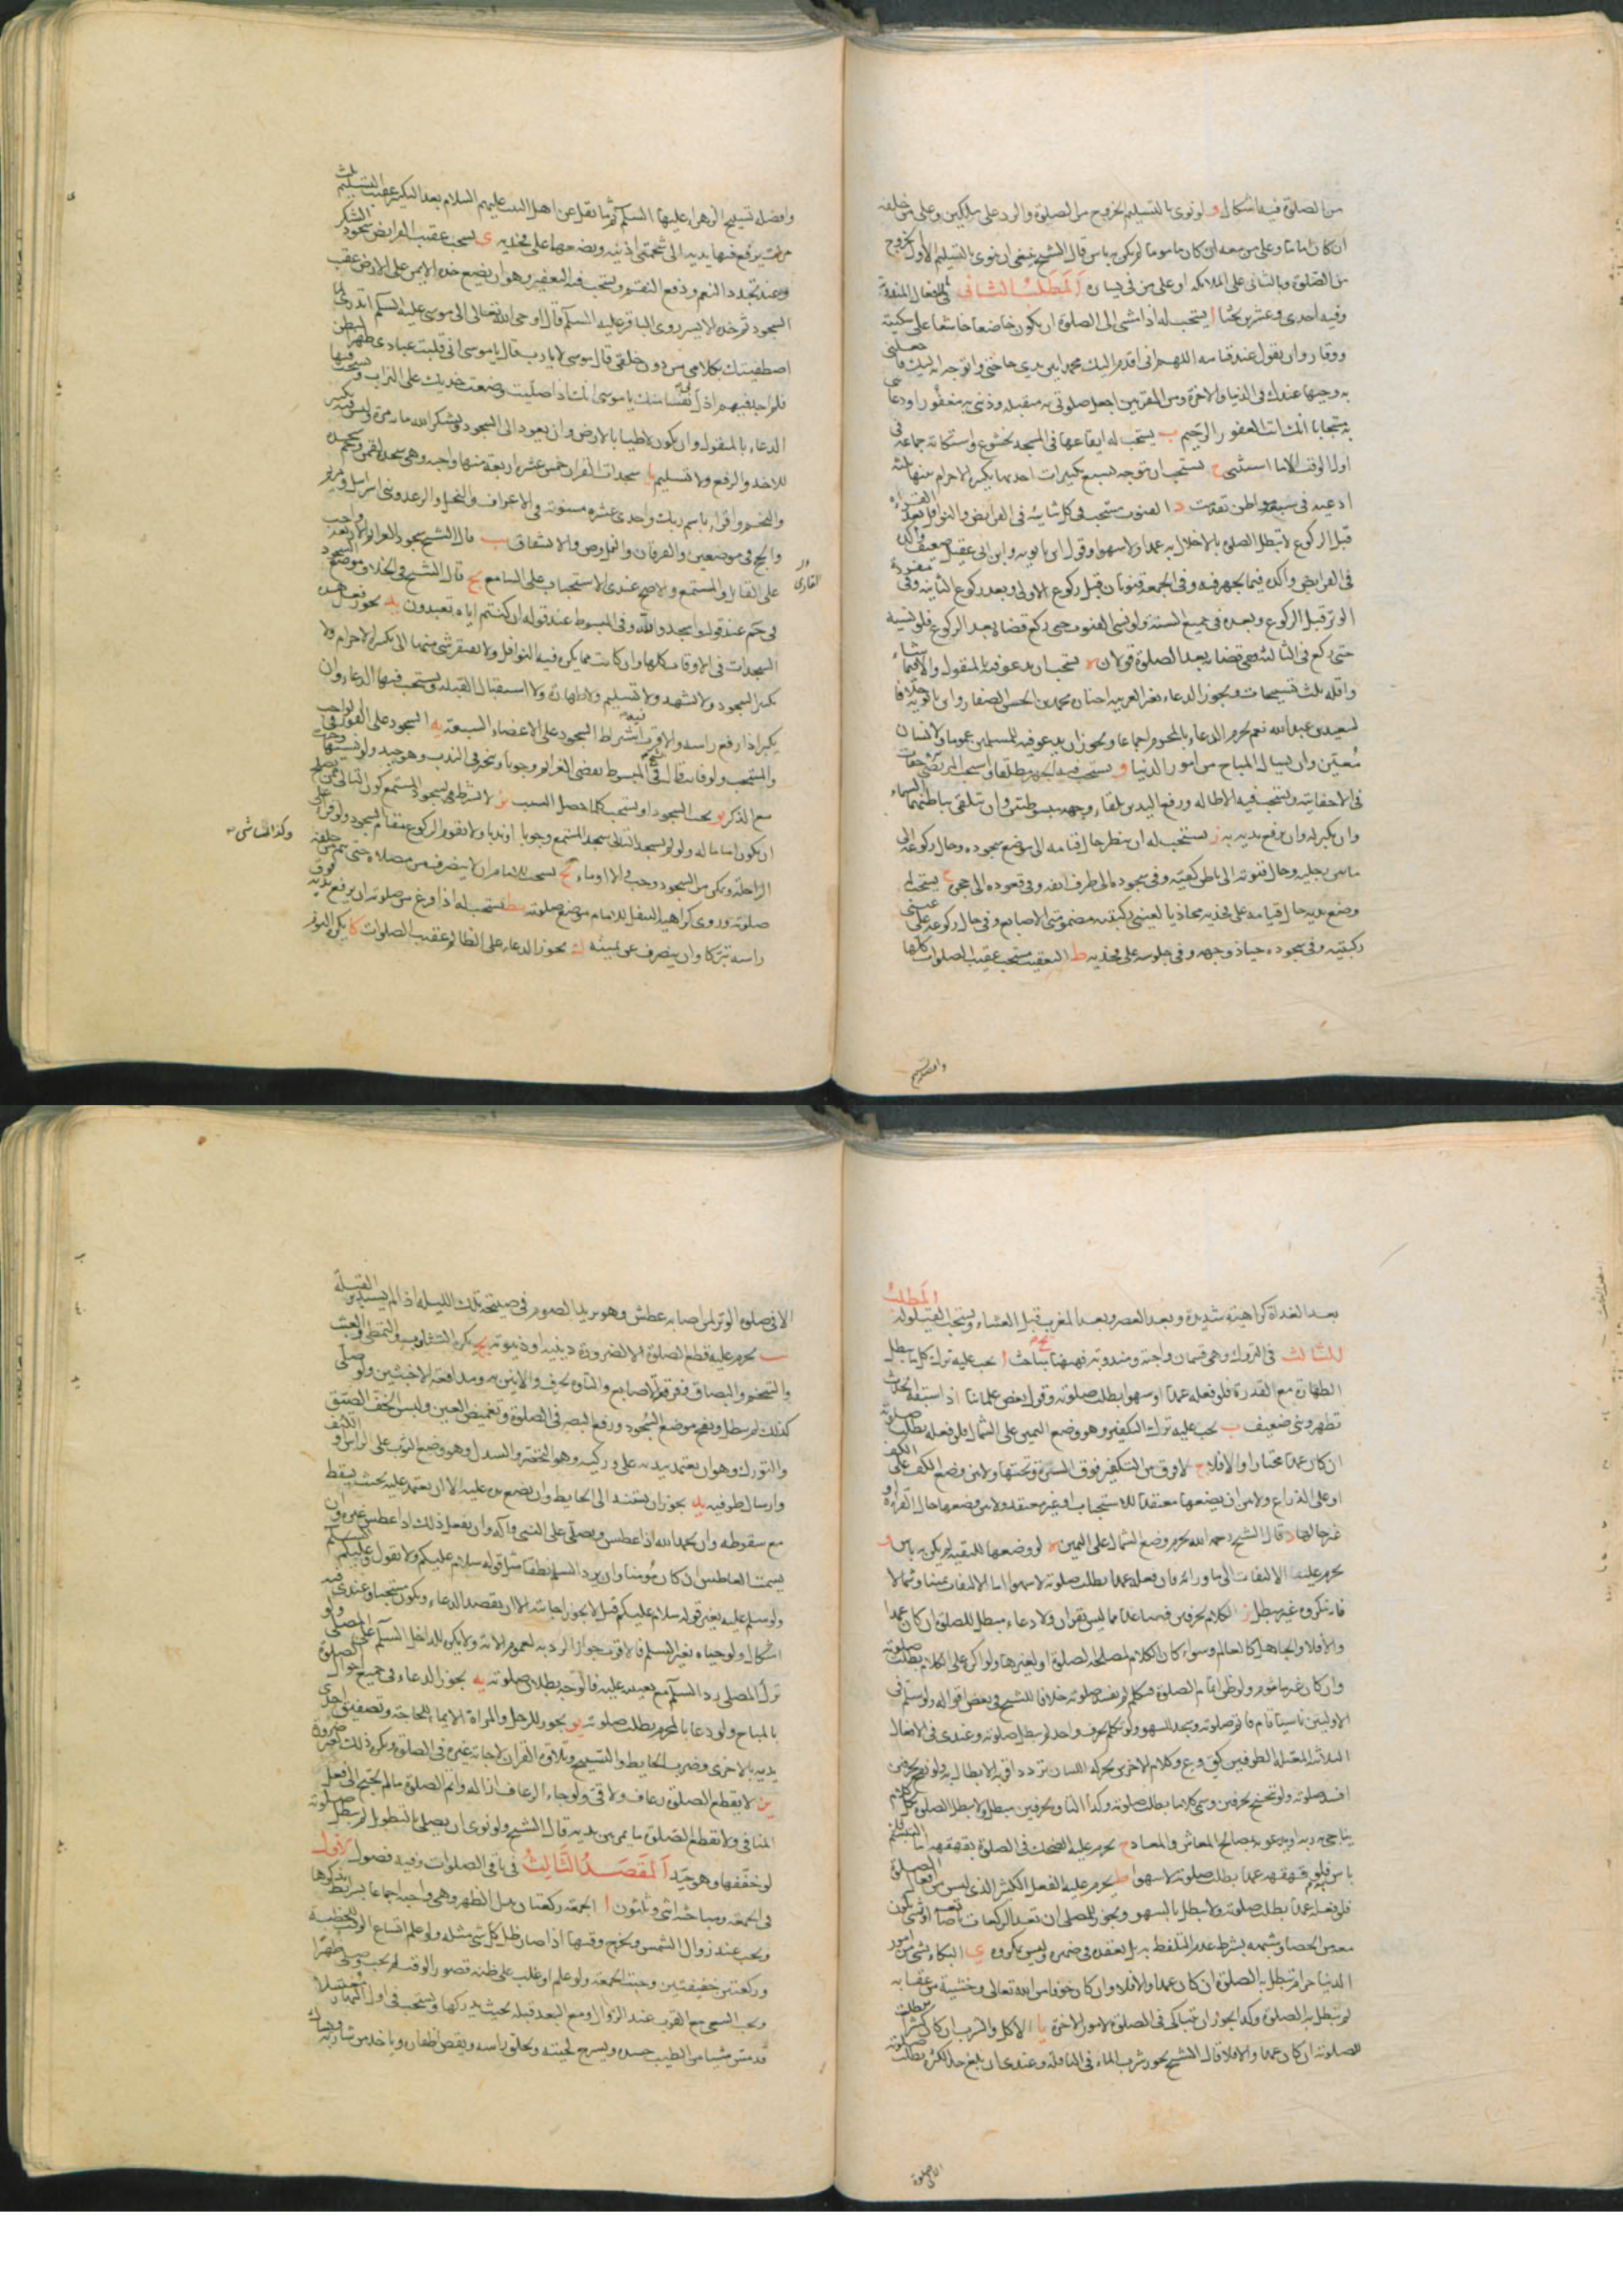 من الصلوة فيه اشكال و لو نوى بالتسليم الخروج من الصلوة والرد على ملكين وعلى من خلفه
ان كان اماما وعلى من معه ان كان ماموما لم يكن به باس قال الشيخ ينبغي ان ينوى بالتسليم الاول الخروج
من الصلوة وبالثانى على الملائكه او على من فى يساره المطلب الثانى فى الافعال المندوبة
وفيه احدى وعشرون بحثا ا يستحب له اذا مشى الى الصلوة ان يكون خاضعا خاشعا على سكينة
ووقار وان يقول عند قيامه اللهم انى اقدم اليك محمدا بين يدى حاجتى واتوجه به اليك فاجعلنى
به وجيها عندك فى الدنيا والاخرة ومن المقربين اجعل صلوتى به مقبلة وذنبى به مغفورا ودعائى
به مستجابا انك انت الغفور الرحيم ب يستحب له ايقاعها فى المسجد بخشوع واستكانة جماعة فى
اول الوقت الا ما استثنى ج يستحب ان يتوجه بسبع تكبيرات احديها تكبيرة الاحرام بينها ثلثة
ادعية فى سبعة مواطن تقدمت د القنوت مستحب فى كل ثانية فى الفرايض والنوافل بعد القراءة
قبل الركوع لا تبطل الصلوة بالاخلال به عمدا ولا سهوا وقول ابن بابويه وابن ابى عقيل ضعيف واكد
فى الفرايض واكد فيما يجهر فيه وفى الجمعة قنوتان قبل ركوع الاولى وبعد ركوع الثانية وفى مفردة
الوتر قبل الركوع وبعده فى جميع السنة ولو نسى القنوت حتى ركع قضاه بعد الركوع فلو نسيه
حتى ركع فى الثالثة ففى قضائه بعد الصلوة قولان ه يستحب ان يدعو فيه بالمنقول والا فبما شاء
واقله ثلث تسبيحات ويجوز الدعاء بغير العربية اختاره محمد بن الحسن الصفار وابن بابويه خلافا
لسعد بن عبد الله نعم يحرم الدعاء بالمحرم اجماعا ويجوز ان يدعو فيه للمسلمين عموما ولانسان
معين وان يسال المباح من امور الدنيا و يستحب فيه الجهر مطلقا واستحب المرتضى خفات
فى الاخفاتية ويستحب فيه الاطالة ورفع اليدين تلقاء وجهه مبسوطتين وان تتلقى بباطنهما السماء
وان يكبر له وان يرفع يديه به ز يستحب له ان ينظر حال قيامه الى موضع سجوده وحال ركوعه الى
ما بين رجليه وحال قنوته الى باطن كفيه وفى سجوده الى طرف انفه وفى قعوده الى حجره ح يستحب
وضع يديه حال قيامه على فخذيه محاذيا لعينى ركبتيه مضمومتى الاصابع وفى حال ركوعه على عينى
ركبتيه وفى سجوده حياذ وجهه وفى جلوسه على فخذيه ط التعقيب مستحب عقيب الصلوات كلها
وافضله تسبيح
وافضله تسبيح الزهراء عليها السلم ثم ما نقل عن اهل البيت عليهم السلام بعد التكبير عقيب التسليم ثلث
مرات يرفع فيها يديه الى شحمتى اذنيه ويضعها على فخذيه ى يستحب عقيب الفرايض سجود الشكر
وعند تجدد النعم ودفع النقم ويستحب فيه التعفير وهو ان يضع خده الايمن على الارض عقيب
السجود ثم خده الايسر روى الباقر عليه السلم قال اوحى الله تعالى الى موسى عليه السلم اتدرى لما
اصطفيتك بكلامى من دون خلقى قال موسى لا يا رب قال يا موسى انى قلبت عبادى ظهرا لبطن
فلم اجد فيهم اذل لى نفسا منك يا موسى انك اذا صليت وضعت خديك على التراب ويستحب فيها
الدعاء بالمنقول وان يكون لاطيا بالارض وان يعود الى السجود ويشكر الله مائة مرة وليس فيه تكبير
للاخذ والرفع ولا تسليم يا سجدات القرآن خمس عشرة اربعة منها واجبة وهى سجدة لقمن وحم السجدة
والنجم واقرء باسم ربك واحدى عشرة مسنونة فى الاعراف والنحل والرعد وبنى اسرائيل ومريم
والحج فى موضعين والفرقان والنمل وص والانشقاق يب قال الشيخ سجود العزائم واجب
على القارئ والمستمع والاصح عندى الاستحباب على السامع يج قال الشيخ فى الخلاف موضع السجود
فى حم عند قوله واسجدوا لله وفى المبسوط عند قوله ان كنتم اياه تعبدون يد يجوز فعل هذه
السجدات فى الاوقات كلها وان كانت مما يكره فيه النوافل ولا يفتقر شئ منها الى تكبيرة الاحرام ولا
تكبير السجود ولا تشهد ولا تسليم ولا طهارة ولا استقبال القبلة ويستحب فيها الدعاء وان
يكبر اذا رفع راسه والاقرب اشتراط السجود على الاعضاء السبعة يه السجود على الفور فى الواجب
والمستحب ولو فات قال فى المبسوط يقضى العزائم وجوبا ويتخير فى الندب وهو جيد ولو نسيها
مع الذكر يو يجب السجود او يستحب كلما حصل السبب يز لا يشترط فى سجود المستمع كون التالى ممن يصلح
ان يكون اماما له ولو لم يسجد التالى سجد المستمع وجوبا او ندبا ولا يقوم الركوع مقام السجود ولو قرأ على
الراحلة وتمكن من السجود وجب والا اوماء يح يستحب للامام ان لا ينصرف من مصلاه حتى يتم من خلفه
صلوته وروى كراهية التنفل للامام موضع صلوته يط يستحب له اذا فرغ من صلوته ان يرفع يديه فوق
راسه تبركا وان ينصرف عن يمينه ك يجوز الدعاء على الظالم عقيب الصلوات كا يكره النوم
القارئ
وكذا الماشى
المطلب
بعد الغداة كراهية شديدة وبعد العصر وبعد المغرب قبل العشاء ويستحب القيلولة
الثالث فى التروك وهى قسمان واجبة ومندوبة فههنا يج مباحث ا يجب عليه ترك كل ما يبطل
الطهارة مع القدرة فلو فعله عمدا او سهوا بطلت صلوته وقول بعض علمائنا اذا سبقه الحدث
تطهر وبنى ضعيف ب يجب عليه ترك التكفير وهو وضع اليمين على الشمال فلو فعله بطلت صلوته
ان كان عمدا مختارا والا فلا ج لا فرق بين التكفير فوق السرة وتحتها ولا بين وضع الكف على الكف
او على الذراع ولا بين ان يضعها معتقدا للاستحباب او غير معتقد ولا بين وضعها حال القراءة او
غير حالها د قال الشيخ رحمه الله يحرم وضع الشمال على اليمين ه لو وضعها للتقية لم يكن به باس و
يحرم عليه الالتفات الى ما ورائه فان فعله عمدا بطلت صلوته لا سهوا اما الالتفات يمينا وشمالا
فانه مكروه غير مبطل ز الكلام بحرفين فصاعدا مما ليس بقرآن ولا دعاء مبطل للصلوة ان كان عمدا
والا فلا والجاهل كالعالم وسواء كان الكلام لمصلحة الصلوة او لغيرها ولو اكره على الكلام بطلت صلوته
وان كان غير ماثوم ولو ظن اتمام الصلوة فتكلم لم تفسد صلوته خلافا للشيخ فى بعض اقواله ولو سلم فى
الاوليين ناسيا قام فاتم صلوته وسجد للسهو ولو تكلم بحرف واحد لم تبطل صلوته وعندى فى الافعال
الثلاثة المعتلة الطرفين كق وع وكلام الاخرس بحركة اللسان تردد اقربه الابطال به ولو نفخ بحرفين
افسد صلوته ولو تنحنح بحرفين وسمى كلاما بطلت صلوته وكذا التاوه بحرفين مبطل ولا تبطل الصلوة بكلام
يناجى به ربه او يدعو به بمصالح المعاش والمعاد ح يحرم عليه الضحك فى الصلوة بقهقهة اما التبسم فلا
باس فلو قهقه عمدا بطلت صلوته لا سهوا ط يحرم عليه الفعل الكثير الذى ليس من افعال الصلوة
فلو فعله عمدا بطلت صلوته ولا تبطل بالسهو ويجوز للمصلى ان يعد الركعات باصابعه او بشئ يكون
معه من الحصا وشبهه بشرط عدم التلفظ به بل يعتقده فى ضميره وليس بمكروه ى البكاء بشئ من امور
الدنيا حرام تبطل به الصلوة ان كان عمدا والا فلا وان كان خوفا من الله تعالى وخشية من عقابه
لم تبطل به الصلوة وكذا يجوز ان يتباكى فى الصلوة لامور الاخرة يا الاكل والشرب ان كان كثيرا مبطلات
للصلوة ان كان عمدا والا فلا قال الشيخ يجوز شرب الماء فى النافلة وعندى ان بلغ حد الكثرة بطلت صلوته
الا فى صلوة
الا فى صلوة الوتر لمن اصابه عطش وهو يريد الصوم فى صبيحة تلك الليلة اذا لم يستدبر القبلة
يب يحرم عليه قطع الصلوة الا لضرورة دينية او دنيوية يج يكره التثاوب والتمطى والعبث
والتنخم والبصاق وفرقعة الاصابع والتاوه بحرف والانين به ومدافعة الاخبثين ولو صلى
كذلك لم تبطل ونفخ موضع السجود ورفع البصر فى الصلوة وتغميض العين ولبس الخف الضيق
والتورك وهو ان يعتمد بيديه على وركيه وهو التخصر والسدل وهو وضع الثوب على الراس او الكتف
وارسال طرفيه يد يجوز ان يستند الى الحايط وان يضع يده عليه الا ان يعتمد عليه بحيث يسقط
مع سقوطه وان يحمد الله اذا عطس ويصلى على النبى وآله وان يفعل ذلك اذا عطس غيره وان
يسمت العاطس ان كان مؤمنا وان يرد السلم نطقا مثل قوله سلام عليكم ولا يقول وعليكم السلم
ولو سلم عليه بغير قوله سلام عليكم قيل لا يجوز اجابته الا ان يقصد الدعاء ويكون مستحقا وعندى فيه
اشكال ولو حياه بغير السلم فالاقرب جواز الرد به لعموم الاية ولا يكره للداخل السلم على المصلى ولو
ترك المصلى رد السلم مع تعينه عليه فالوجه بطلان صلوته يه يجوز الدعاء فى جميع احوال الصلوة
بالمباح ولو دعا بالمحرم بطلت صلوته يو يجوز للرجل والمراة الايماء للحاجة وتصفيق احدى
يديه بالاخرى وضرب الحايط والتسبيح وتلاوة القرآن لاجابة غيره فى الصلوة ويكره ذلك لغير ضرورة
يز لا يقطع الصلوة رعاف ولا قئ ولو جاءه الرعاف ازاله واتم الصلوة ما لم يحتج الى فعل
المنافى ولا تقطع الصلوة ما يمر بين يديه قال الشيخ ولو نوى ان يصلى بالتطويل لم تبطل صلوته
لو خففها وهو جيد المقصد الثالث فى باقى الصلوات وفيه فصول الاول
فى الجمعة ومباحثه اثنى وثلثون ا الجمعة ركعتان بدل الظهر وهى واجبة اجماعا بشرايط نذكرها
ويجب عند زوال الشمس ويخرج وقتها اذا صار ظل كل شئ مثله ولو علم اتساع الوقت للخطبة
وركعتين خفيفتين وجبت الجمعة ولو علم او غلب على ظنه قصور الوقت لم يجب وصلى ظهرا
ويجب السعى مع القرب عند الزوال ومع البعد قبله بحيث يدركها ويستحب فى اول النهار مغتسلا
قد مس شيئا من الطيب جسده ويسرح لحيته ويحلق راسه ويقص اظفاره وياخذ من شاربه